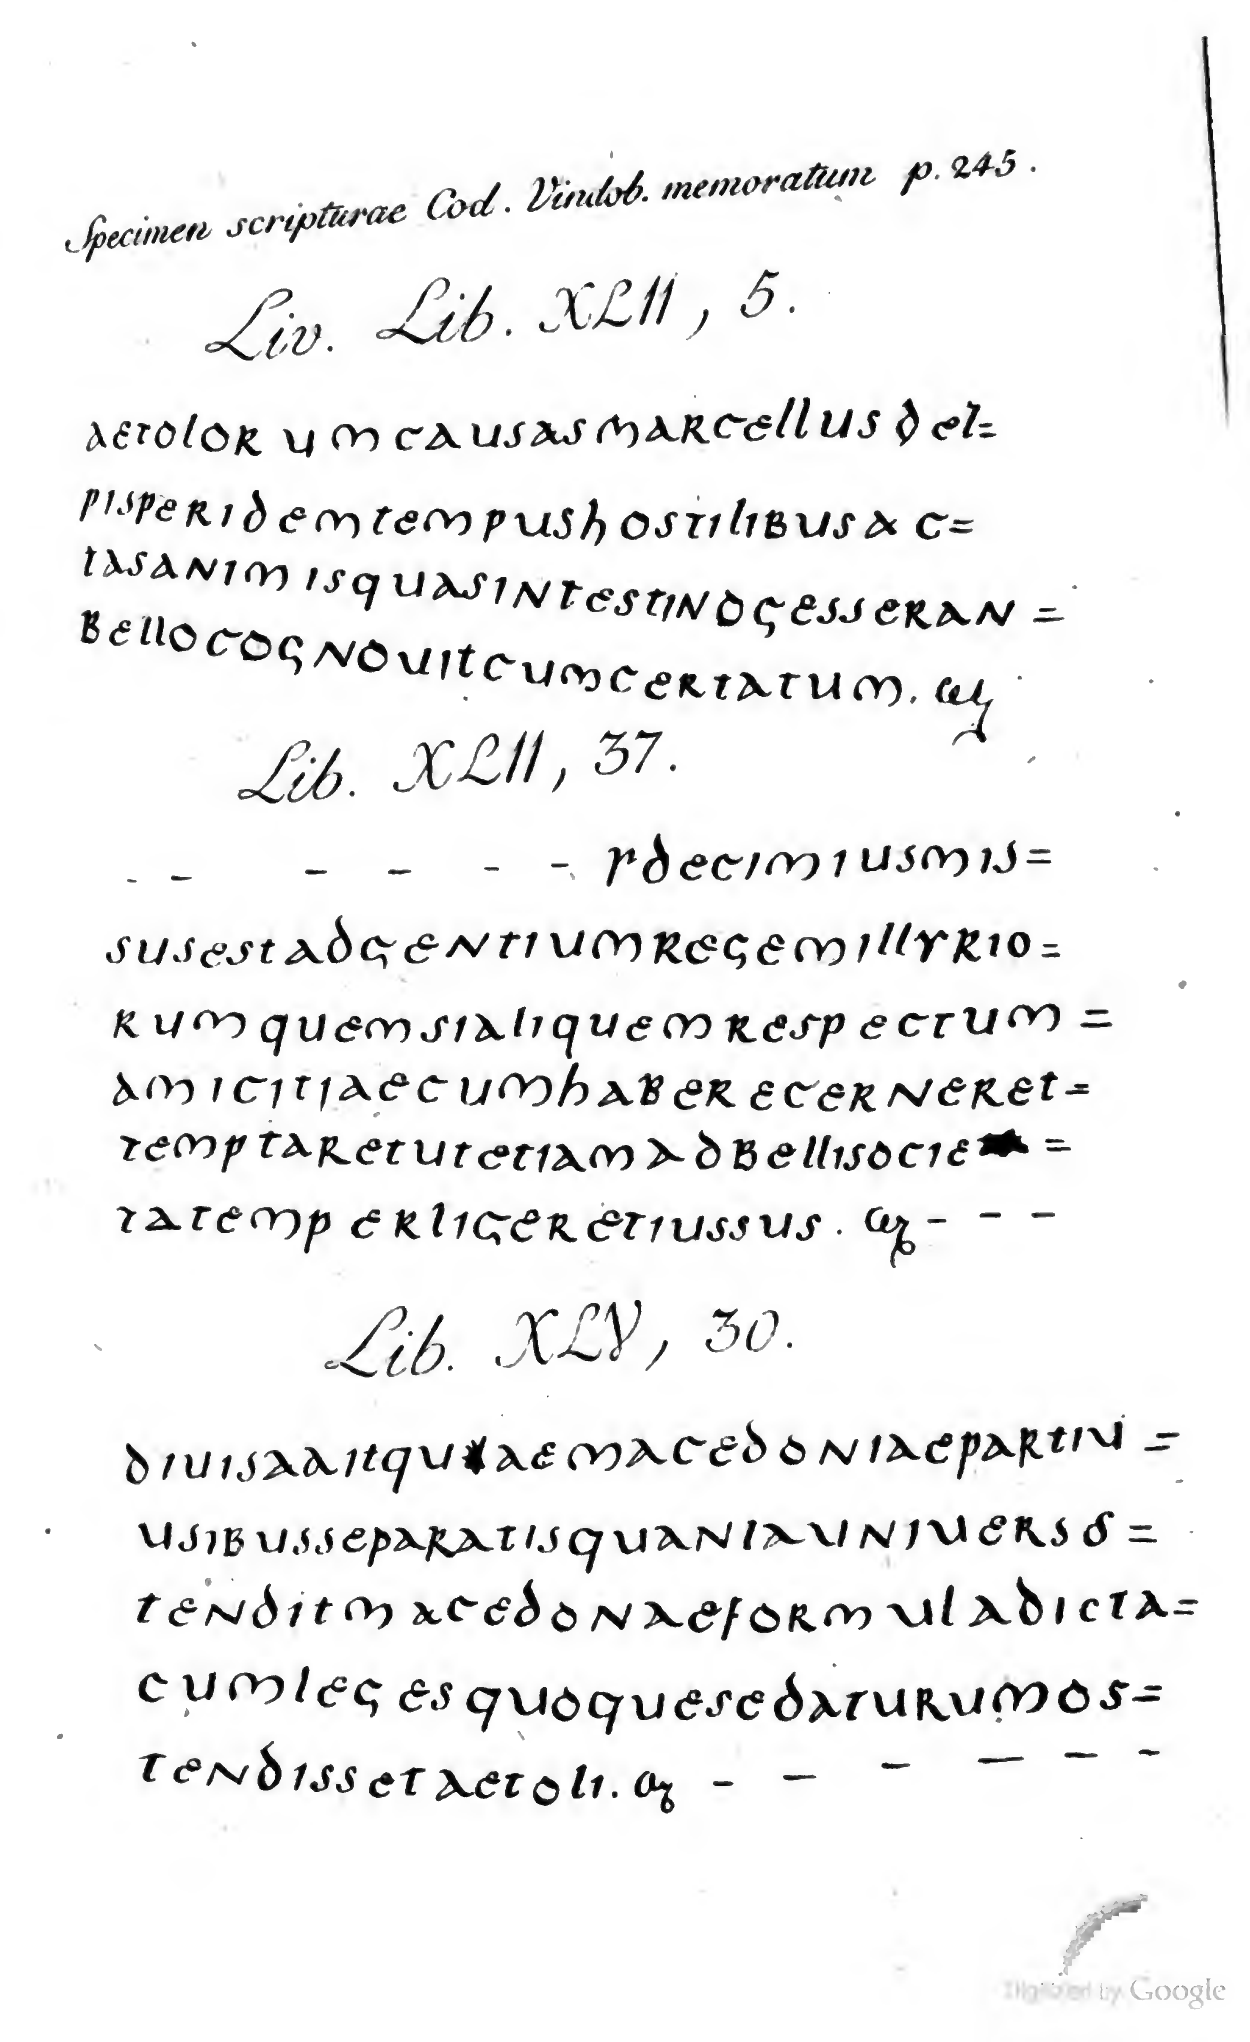 Specimen scripturae Cod. Vindob. memoratum p. 245.
Liv. Lib. XLII, 5.
aetolorumcausasmarcellusdel=
pisperidemtempushostilibusac=
tasanimisquasintestinogesseran=
bellocognouitcumcertatum.
Lib. XLII, 37.
- - - - - - pdecimiusmis=
susestadgentiumregemillyrio=
rumquemsialiquemrespectum=
amicitiaecumhaberecerneret=
temptaretutetiamadbellisocie =
tatemperligeretiussus. - - -
Lib. XLV, 30.
diuisaaitquaemacedoniaepartiu=
usibusseparatisquaniauniuerso=
tenditmacedonaeformuladicta=
cumlegesquoquesedaturumos=
tendissetaetoli. - - - - - -
Digitized by Google